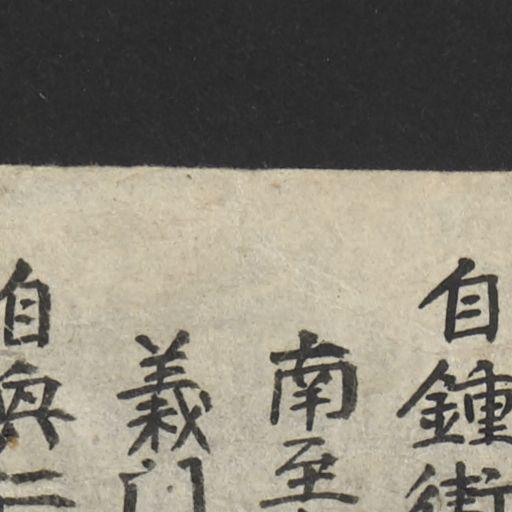 自鍾街
南至
義门
自每二